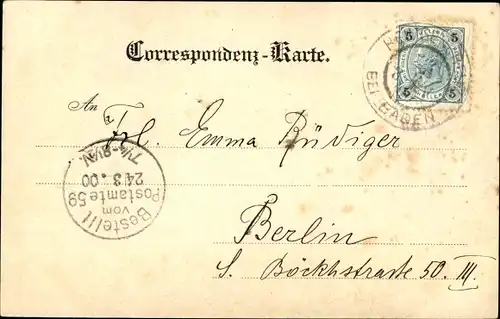 Correspondenz-Karte.
An
Frl. Emma Rüdiger
Berlin
S. Böckhstraße 50. III.
Bestellt
vom
Postamte 59
24/3.00
7¼-8½V.
5 5
5 5
BEI BADEN